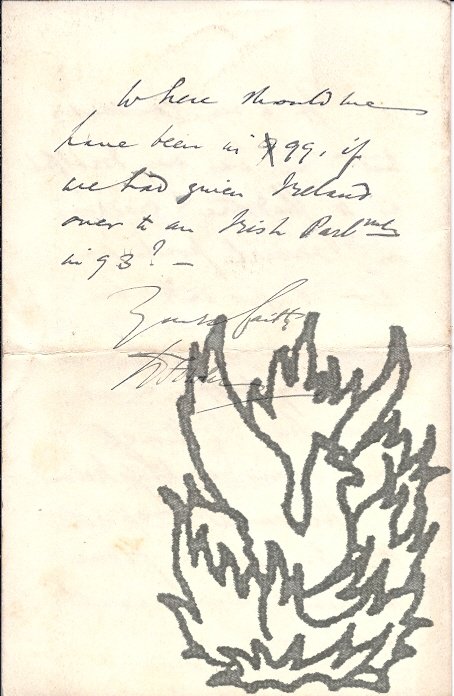 Where should we
have been in 99, if
we had given Ireland
over to an Irish Parl<sup>mt</sup>
in 93? –
Yours faithy